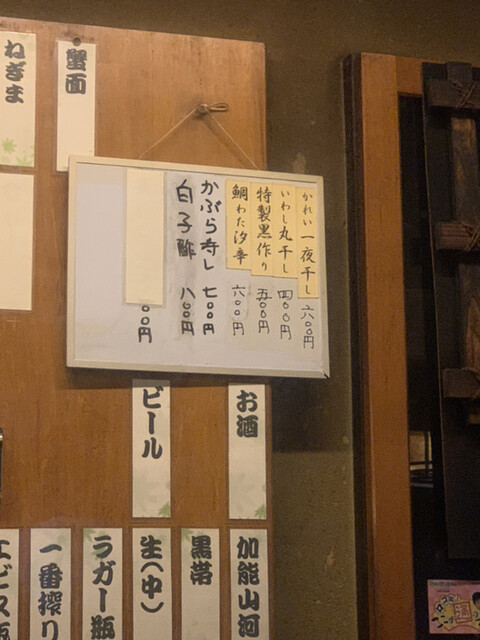 かれい一夜干し 六〇〇円
いわし丸干し 四〇〇円
特製黒作り 五〇〇円
鯛わた汐辛 六〇〇円
かぶら寿し 七〇〇円
白子酢 八〇〇円
〇〇円
蟹面
ねぎま
お酒
ビール
加能山河
黒帯
生(中)
ラガー瓶
一番搾り
エビス瓶